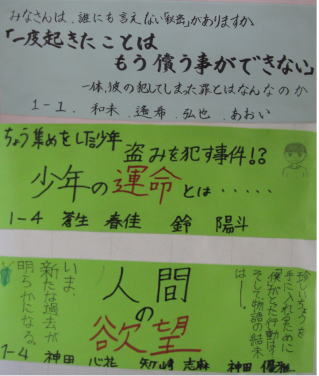 みなさんは、誰にも言えない秘密がありますか
「一度起きたことは
もう償う事ができない」
一体、彼の犯してしまった罪とはなんなのか
1-1. 和未 遙希 弘也 あおい
ちょう集めをした少年
盗みを犯す事件!?
少年の運命とは・・・・・
1-4 蒼生 春佳 鈴 陽斗
珍しいちょうを
手に入れるために
僕がとった行動は
そして物語の結末
は―。
人間
の
欲望
いま、
新たな過去が
明らかになる。
1-4 神田 心花 知崎 志麻 神田 優雅